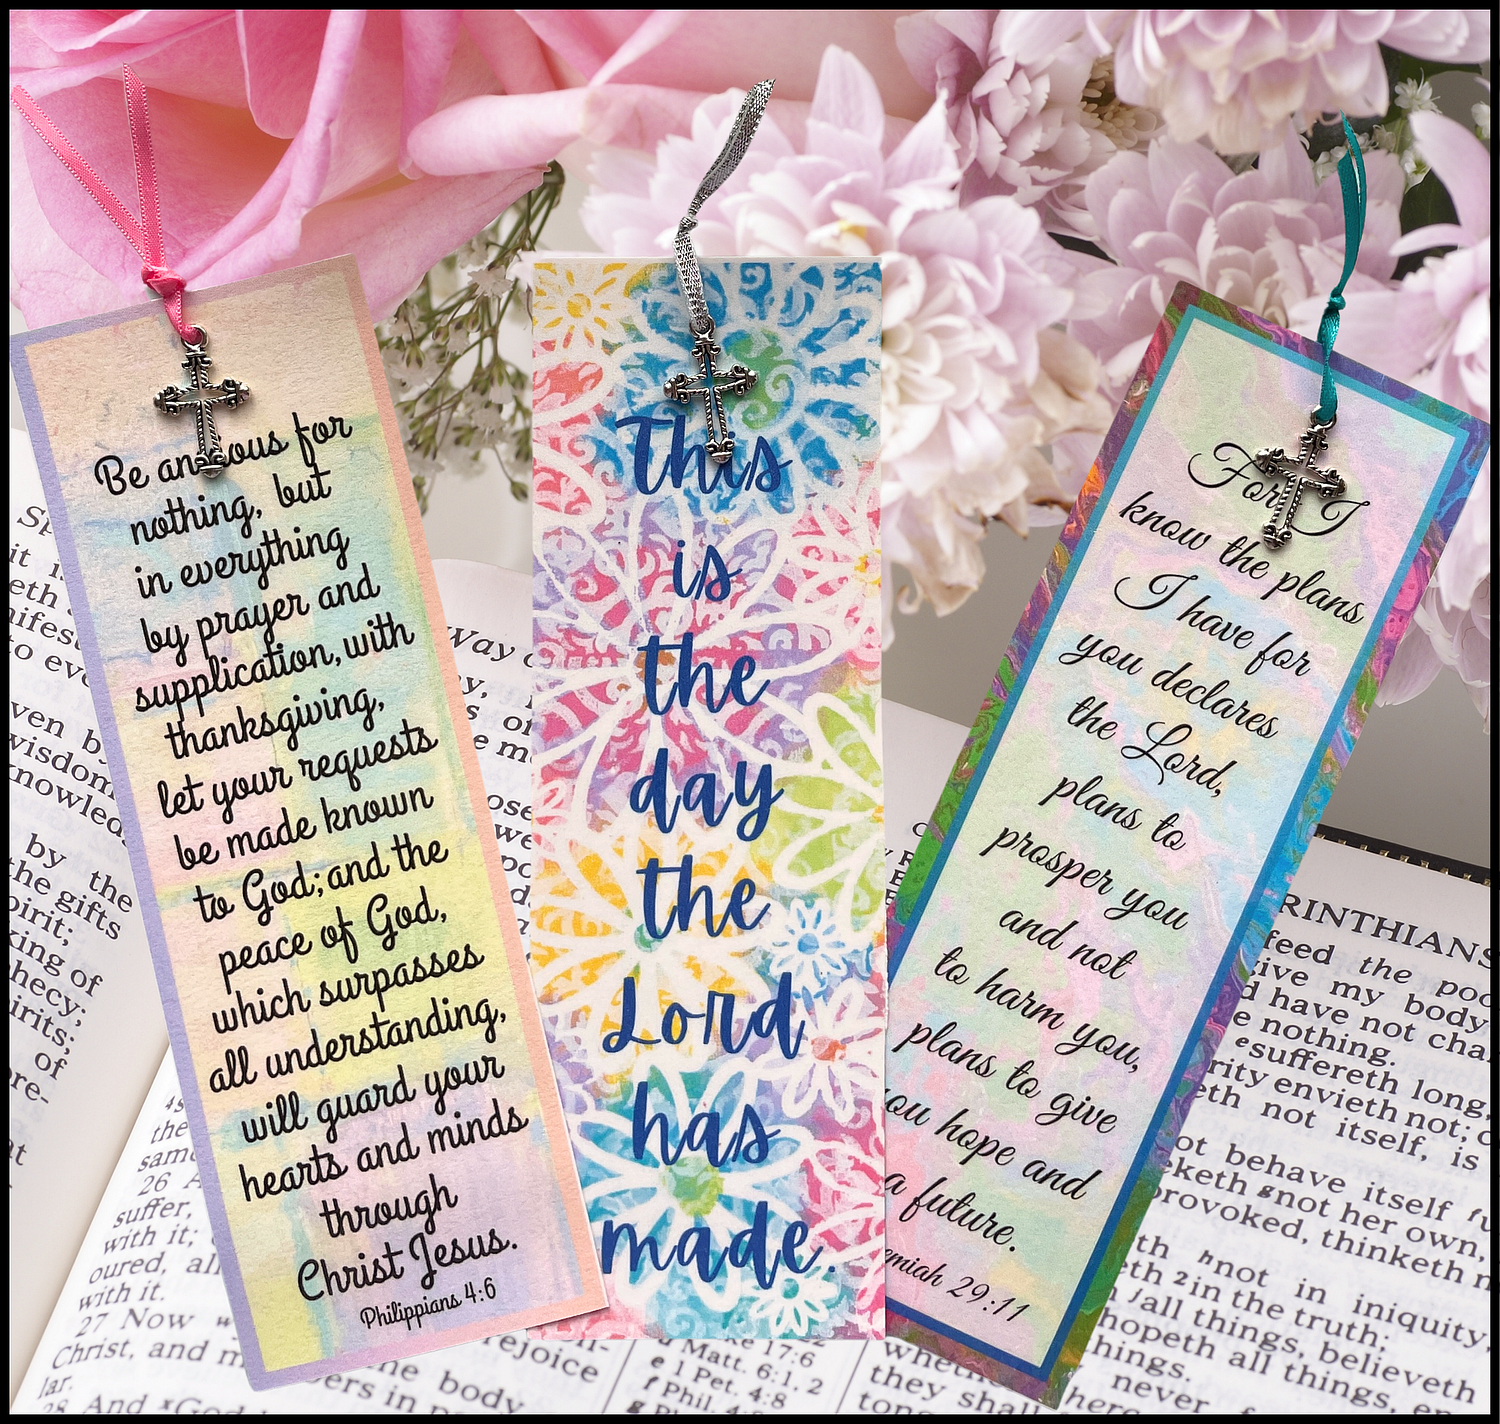 Be an ous for
nothing, but
in everything
by prayer and
supplication, with
thanksgiving,
let your requests
be made known
to God; and the
peace of God,
which surpasses
all understanding,
will guard your
hearts and minds
through
Christ Jesus.
Philippians 4:6
This
is
the
day
the
Lord
has
made.
For I
know the plans
I have for
you declares
the Lord,
plans to
prosper you
and not
to harm you,
plans to give
ou hope and
a future.
emiah 29:11
by the
the gifts
of
26
suffer,
with it;
with it.
27 Now
Christ, and
rejoice
the body
28 And God
17:6
Matt. 6:1, 2
e 1 Pet. 4:8
f Phil.
they shall
RINTHIANS
feed the poo
give my body
d have not cha
e nothing.
suffereth long,
rity envieth not; c
eth not itself, is
ot behave itself
eketh not her own,
provoked, thinketh n
th not in iniquity,
eth in the truth;
all things, believeth
hopeth all things, en
things.
never